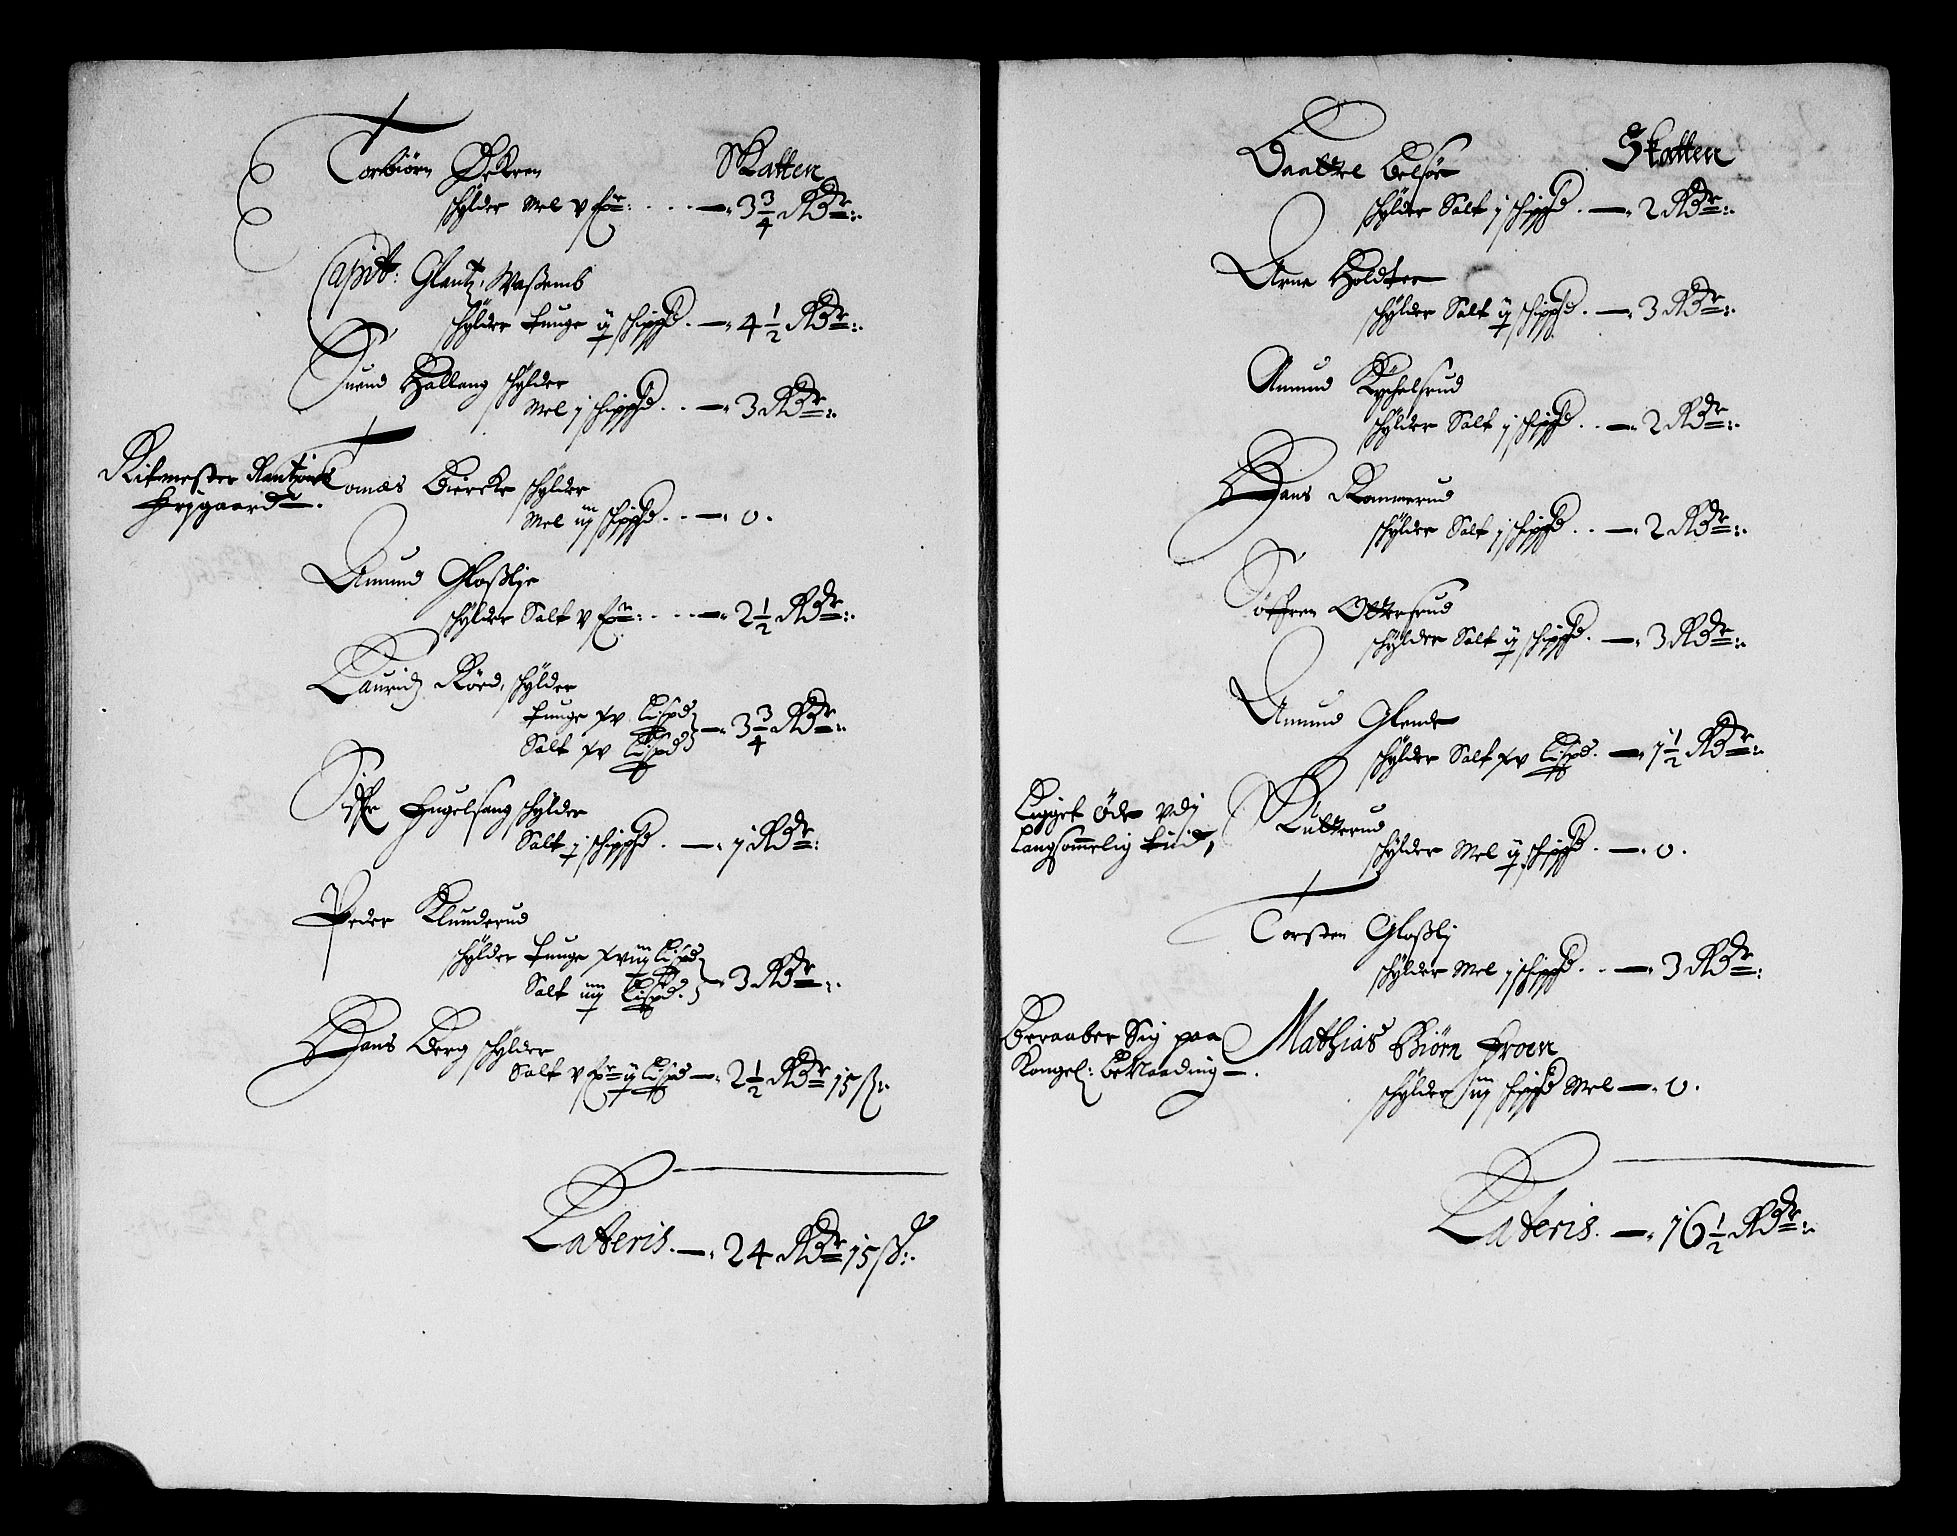 Torbiörn Økern Skatten
schylder Mel v fr: .... — 3 3/4 Rdr:
Capit: Glantz, Waßemb
schylder tunge ij schippd. — 4 1/2 Rdr:
Suend Hallang schylder
Mel j schippd .. — 3 Rdr:
Ritmester Rantzous
frijgaard —.
Tomæs Biercke schylder
Mel iij schippd .. — 0.
Amund Gloßlje
schylder Salt v fr: ... — 2 1/2 Rdr:
Lauridz Röed, schylder
tunge xv Lispd
Salt xv Lispd — 3 3/4 Rdr:
Siffr fugelsang schylder
Salt j schippd . — 1 Rdr:
Peder Klunderud
schylder tunge xviij Lispd
Salt iiij Lispd. — 3 Rdr:
Hans Berg schylder
Salt v fr ij Lispd — 2 1/2 Rdr 15 ß:
Lateris. — 24 Rdr 15 ß:
Baattel Belsöe Skatten
schylder Salt j schippd . — 2 Rdr:
Arne Holdter
schylder Salt ij schippd . — 3 Rdr:
Amund Kychelsrud
schylder Salt j schippd .. — 2 Rdr:
Hans Rammerud
schylder Salt j schippd .. — 2 Rdr:
Söffren Ottersrud
schylder Salt ij schippd . — 3 Rdr:
Amund Glende
schylder Salt xv Lispd. — 1 1/2 Rdr:
Ligget øde vdj
Langsommelig tiid,
Rutterud
schylder Mel ij schippd . — 0.
Torsten Gloßlj
schylder Mel j schippd .. — 3 Rdr:
Beraaber Sig paa
Kongel: beNaading —.
Mathias Biörn froen
schylder iij schippd Mel — 0.
Lateris. — 16 1/2 Rdr: